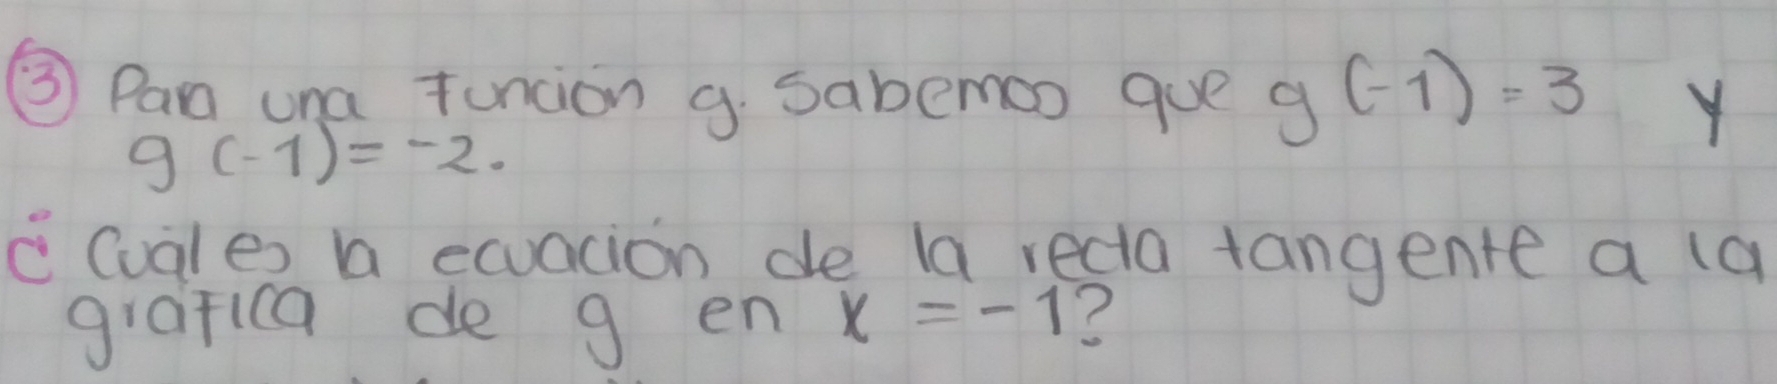 ③ Para una función g. Sabemos que g (-1) = 3 y
g (-1) = -2.
¿ Cuál es la ecuación de la recta tangente a la
gráfica de g en x = -1?